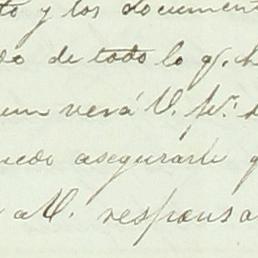 to y los document
do de todo lo q. h
um verá V. Sr. d
uedo asegurarle q
a V. respensa